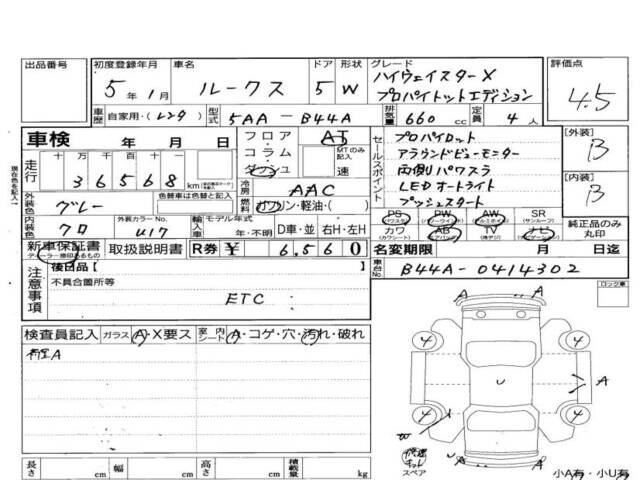 出品番号
初度登録年月
5年 1月
車名
ルークス
ドア 形状
5 W
グレード
ハイウェイスターX
プロパイロットエディション
評価点
4.5
車歴 自家用・(レンタ)
型式 5AA-B44A
排気量 660 cc
定員 4 人
車検 年 月 日
フロア・コラム・ダッシュ
AT
MTのみ記入
速
走行 十 万 千 百 十
36568 km
冷房 AAC
燃料 ガソリン・軽油・( )
セールスポイント
プロパイロット
アラウンドビューモニター
両側パワスラ
LEDオートライト
プッシュスタート
[外装]
B
[内装]
B
現在色を記入
外装色 グレー
色替車は色替と記入
内装色 クロ
外装カラーNo. U17
輸入車 モデル年式
年・不明
D車・並 右H・左H
PS PW AW SR
(パワステ) (パワーウインドウ) (アルミホイール) (サンルーフ)
カワ AB TV ナビ
(カワシート) (エアバック) (地デジ) (ナビゲーション)
純正品のみ丸印
新車保証書
ディーラー捺印あるもの
取扱説明書
R券 ¥ 6,560
名変期限 月 日迄
注意事項
後日品[ ]
不具合箇所等
ETC
車台No. B44A-0414302
ロジック車
検査員記入
ガラス A・X要ス
室内シート A・コゲ・穴・汚れ・破れ
A
A
4
4
U
A
4
4
W
修理キット
スペア
U A
A
小A有・小U有
長さ cm 幅 cm 高さ cm 積載量 kg